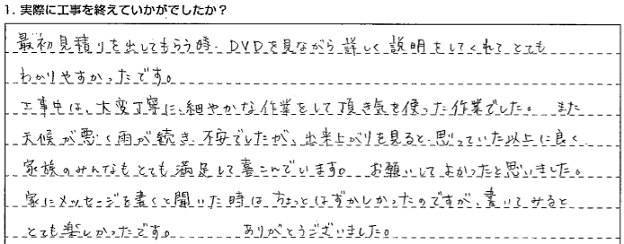 1. 実際に工事を終えていかがでしたか？
最初見積りを出してもらう時、DVDを見ながら詳しく説明をしてくれてとても
わかりやすかったです。
工事中は、大変丁寧に、細やかな作業をして頂き気を使った作業でした。 また
天候が悪く雨が続き、不安でしたが、出来上がりを見ると、思っていた以上に良く、
家族のみんなもとても満足して喜こんでいます。 お願いしてよかったと思いました。
家にメッセージを書くと聞いた時はちょっとはずかしかったのですが、書いてみると
とても楽しかったです。 ありがとうございました。